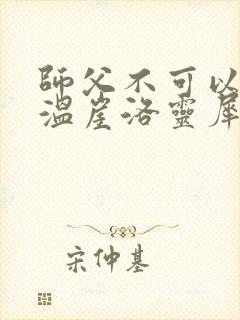 師父不可以
溫崖洛靈犀
宋仲基